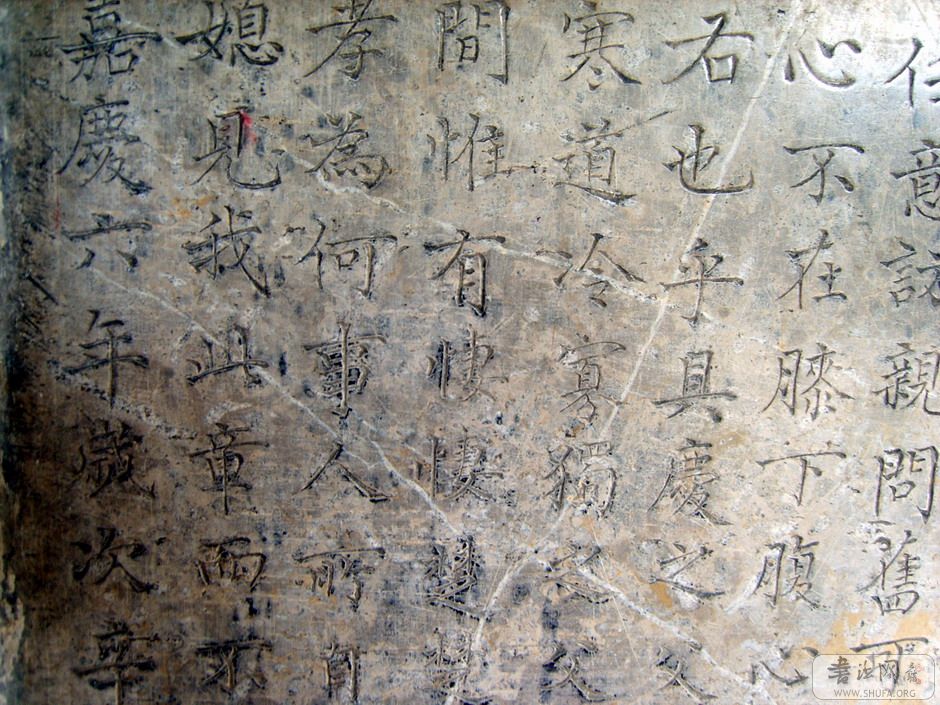 任意訪親問舊可
心不在膝下腹心
右也乎具慶之父
寒道冷寡獨之父
間惟有悽悽楚楚
孝為何事人所
媳見我此章而不
嘉慶六年歲次辛
書法网
WWW.SHUFA.ORG